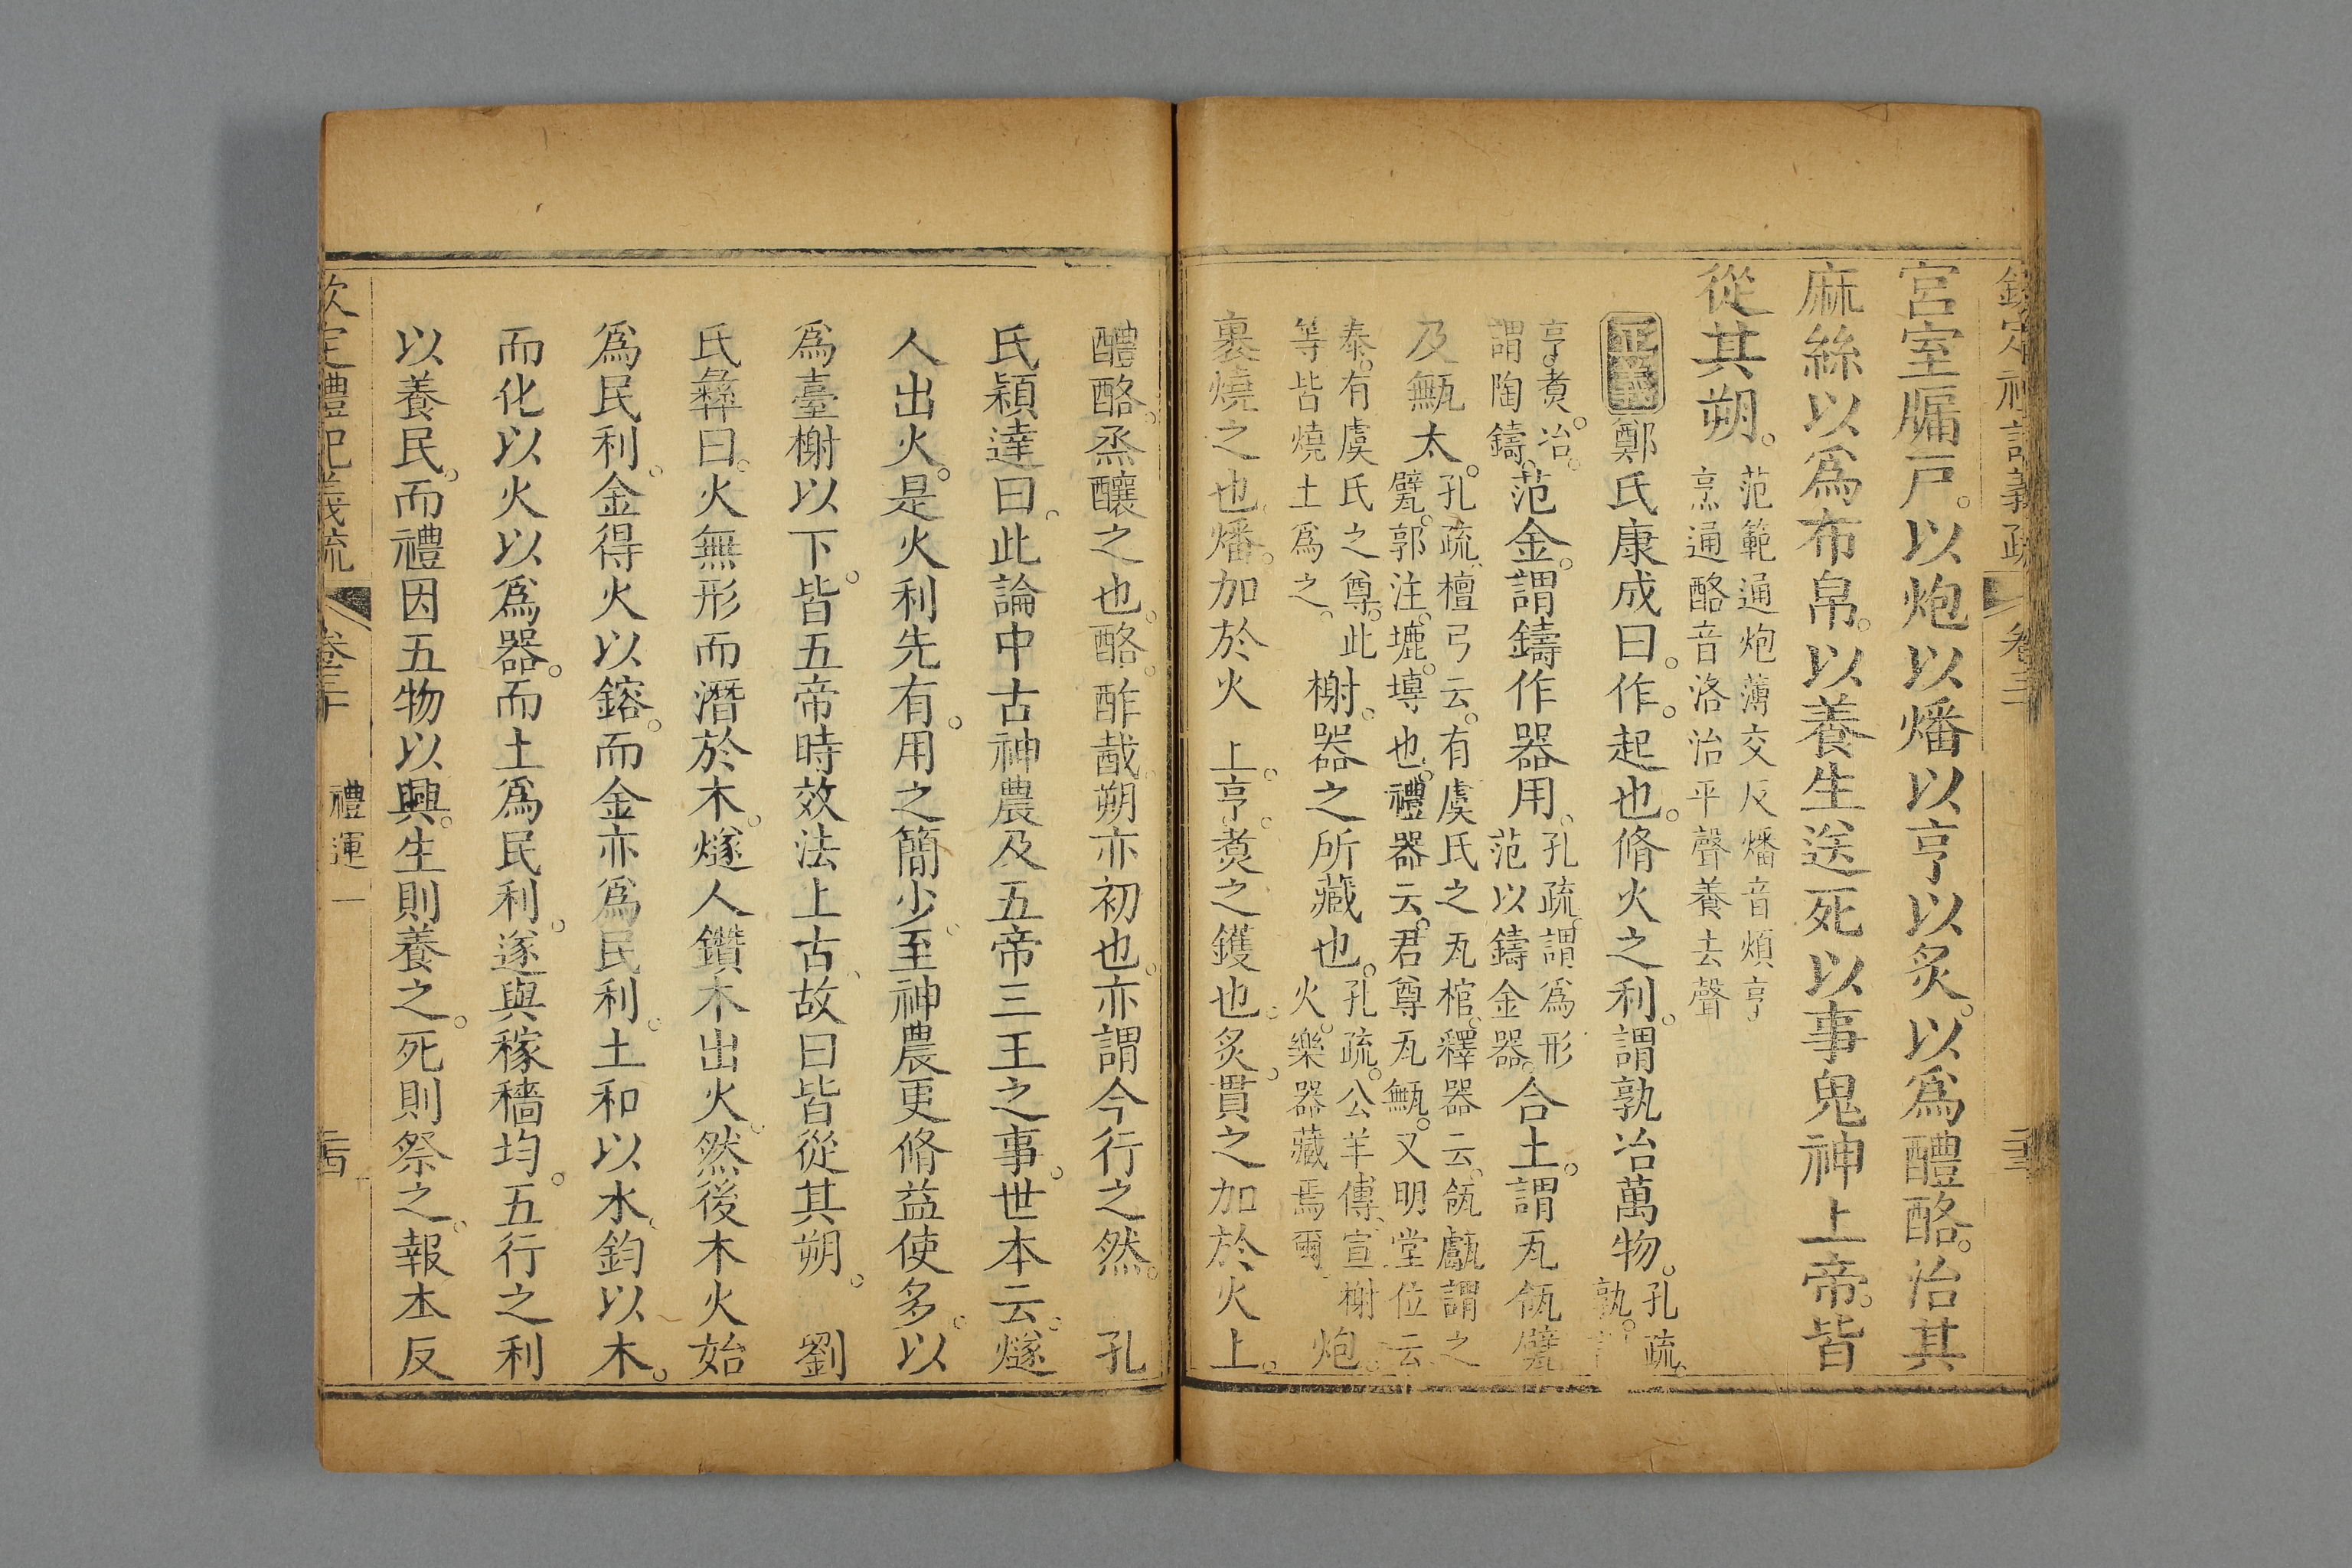 宮室牖戸。以炮以燔以亨以炙。以爲醴酪。治其
麻絲以爲布帛。以養生送死以事鬼神上帝。皆
從其朔。范範通炮薄交反燔音煩亨
烹通酪音洛治平聲養去聲
正義鄭氏康成曰。作。起也。脩火之利。謂孰冶萬物。孔疏。
孰。
亨。煑。冶。
謂陶鑄。范金。謂鑄作器用。孔疏。謂爲形
范以鑄金器。合土。謂瓦瓴甓
及甒太。孔疏。檀弓云。有虞氏之瓦棺。釋器云。瓴甗謂之
甓。郭注。㼾塼也。禮器云。君尊瓦甒。又明堂位云
泰。有虞氏之尊。此
等皆燒土爲之。榭。器之所藏也。孔疏。公羊傳。宣榭
火。樂器藏焉爾。炮。
裹燒之也。燔。加於火上。亨。煑之鑊也。炙。貫之加於火上。
醴酪。烝釀之也。酪。酢胾。朔亦初也。亦謂今行之然。 孔
氏穎達曰。此論中古神農及五帝三王之事。世本云。燧
人出火。是火利先有。用之簡少。至神農更脩益使多。以
爲臺榭以下。皆五帝時效法上古。故曰皆從其朔。 劉
氏彝曰。火無形而潛於木。燧人鑽木出火。然後木火始
爲民利。金得火以鎔。而金亦爲民利。土和以水。鈞以木。
而化以火以爲器。而土爲民利。遂與稼穡均。五行之利
以養民。而禮因五物以興。生則養之。死則祭之。報本反
欽定禮記義疏 卷三十 禮運一